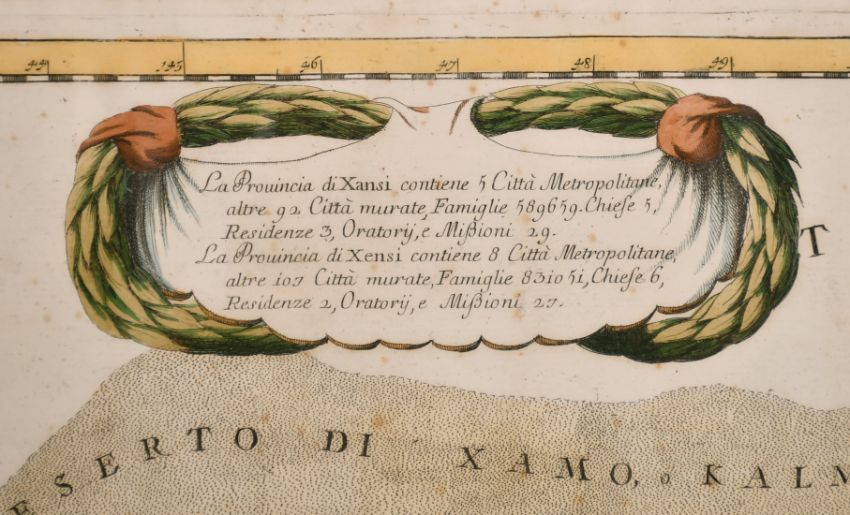 44 145 46 47 48 49
La Prouincia di Xansi contiene 5 Città Metropolitane,
altre 92 Città murate, Famiglie 589659. Chiese 5,
Residenze 3, Oratorij, e Mißioni 29.
La Prouincia di Xensi contiene 8 Città Metropolitane,
altre 107 Città murate, Famiglie 831051, Chiese 6,
Residenze 2, Oratorij, e Mißioni 27.
T
ESERTO DI XAMO, o KALM